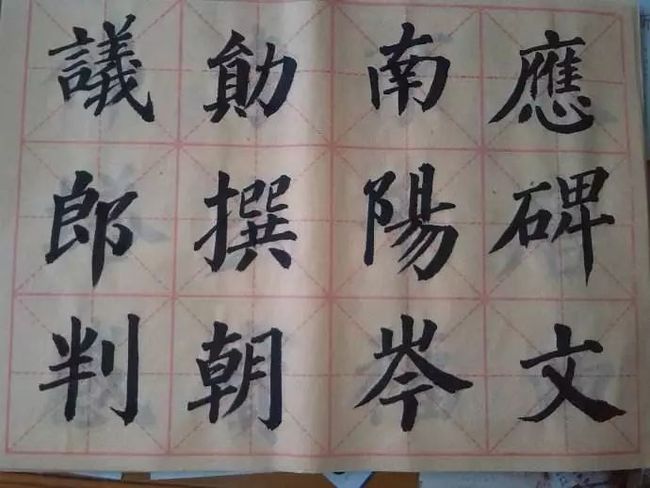 應碑文
南陽岑
勛撰朝
議郎判